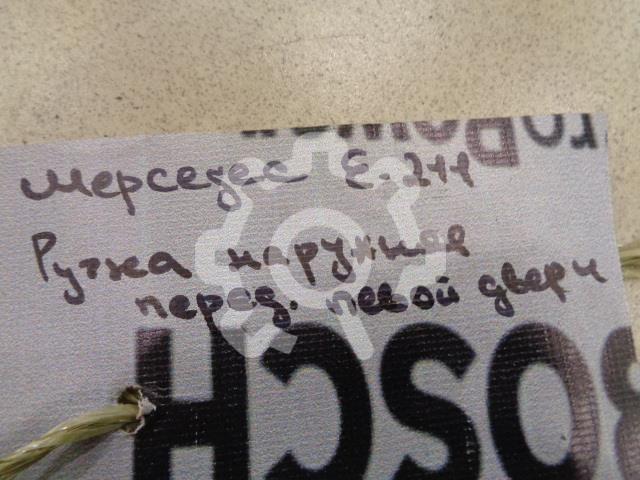 Мерседес E-211
Ручка наружная
перед. левой двери
BOSCH